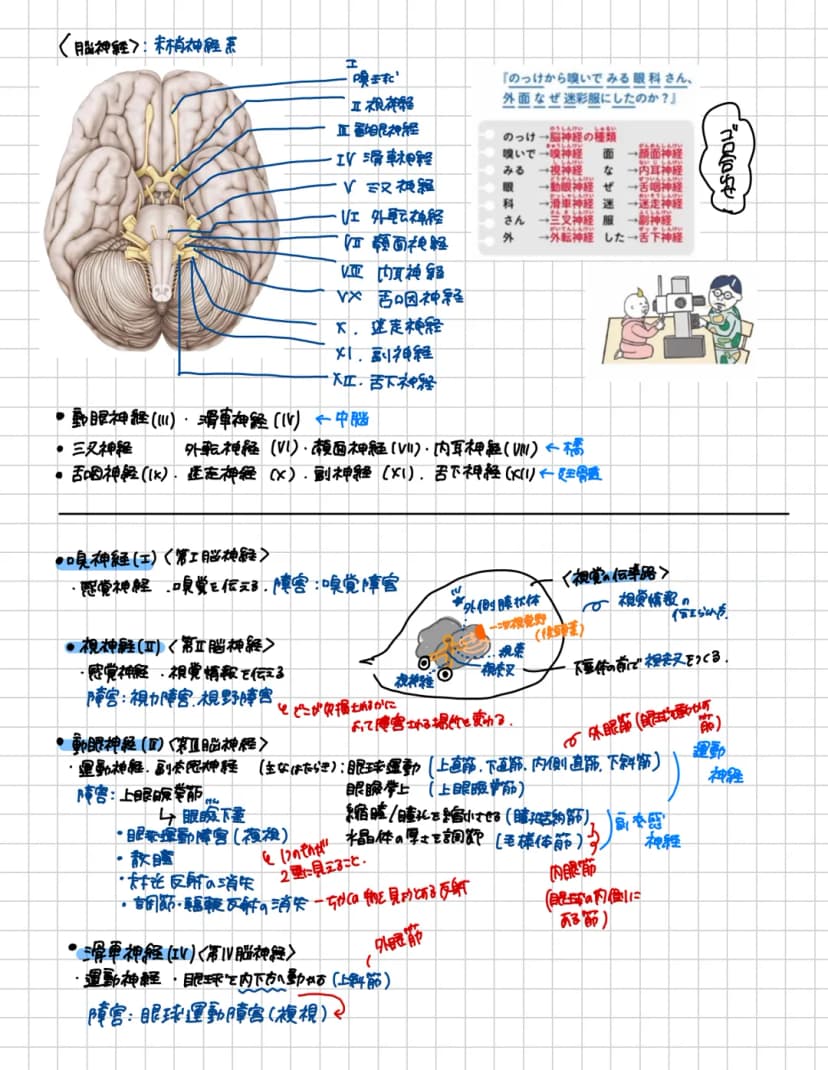 〈脳神経〉: 末梢神経系
I
嗅神経
II 視神経
III 動眼神経
IV 滑車神経
V 三叉神経
VI 外転神経
VII 顔面神経
VIII 内耳神経
VX 舌咽神経
X. 迷走神経
XI. 副神経
XII. 舌下神経
『のっけから嗅いで みる 眼 科 さん、
外 面 な ぜ 迷彩服にしたのか？』
のっけ→脳神経の種類
嗅いで→嗅神経 面 →顔面神経
みる →視神経 な →内耳神経
眼 →動眼神経 ぜ →舌咽神経
科 →滑車神経 迷 →迷走神経
さん →三叉神経 服 →副神経
外 →外転神経 した→舌下神経
ゴロ合わせ
• 動眼神経(III)・滑車神経(IV) ←中脳
• 三叉神経 外転神経(VI)・顔面神経(VII)・内耳神経(VIII) ←橋
• 舌咽神経(IX). 迷走神経(X). 副神経(XI). 舌下神経(XII) ←延髄
•嗅神経(I)〈第I脳神経〉
・感覚神経 . 嗅覚を伝える. 障害:嗅覚障害
〈視覚の伝導路〉
視覚情報の
外側膝状体
一次視覚野
(後頭葉)
視索
視交叉
視神経
下垂体の前で視交叉をつくる.
• 視神経(II)〈第II脳神経〉
・感覚神経 ・視覚情報を伝える
障害:視力障害.視野障害
どこが欠損されるかに
よって障害される場所も変わる.
• 動眼神経(II)〈第III脳神経〉
外眼筋(眼球を動かす筋)
・運動神経.副交感神経 (主なはたらき):眼球運動(上直筋.下直筋.内側直筋.下斜筋)
運動
神経
障害:上眼瞼挙筋
眼瞼挙上(上眼瞼挙筋)
↳眼瞼下垂
縮瞳/瞳孔を縮小させる(瞳孔括約筋)
・眼球運動障害(複視)
水晶体の厚さを調節(毛様体筋)
副交感
神経
1つのものが
2重に見えること.
・散瞳
内眼筋
(眼球の内側に
ある筋)
・対光反射の消失
・調節・輻輳反射の消失 —ちかくの物を見ようとする反射
• 滑車神経(IV)〈第IV脳神経〉
外眼筋
・運動神経 ・眼球を内下方へ動かす(上斜筋)
障害:眼球運動障害(複視)